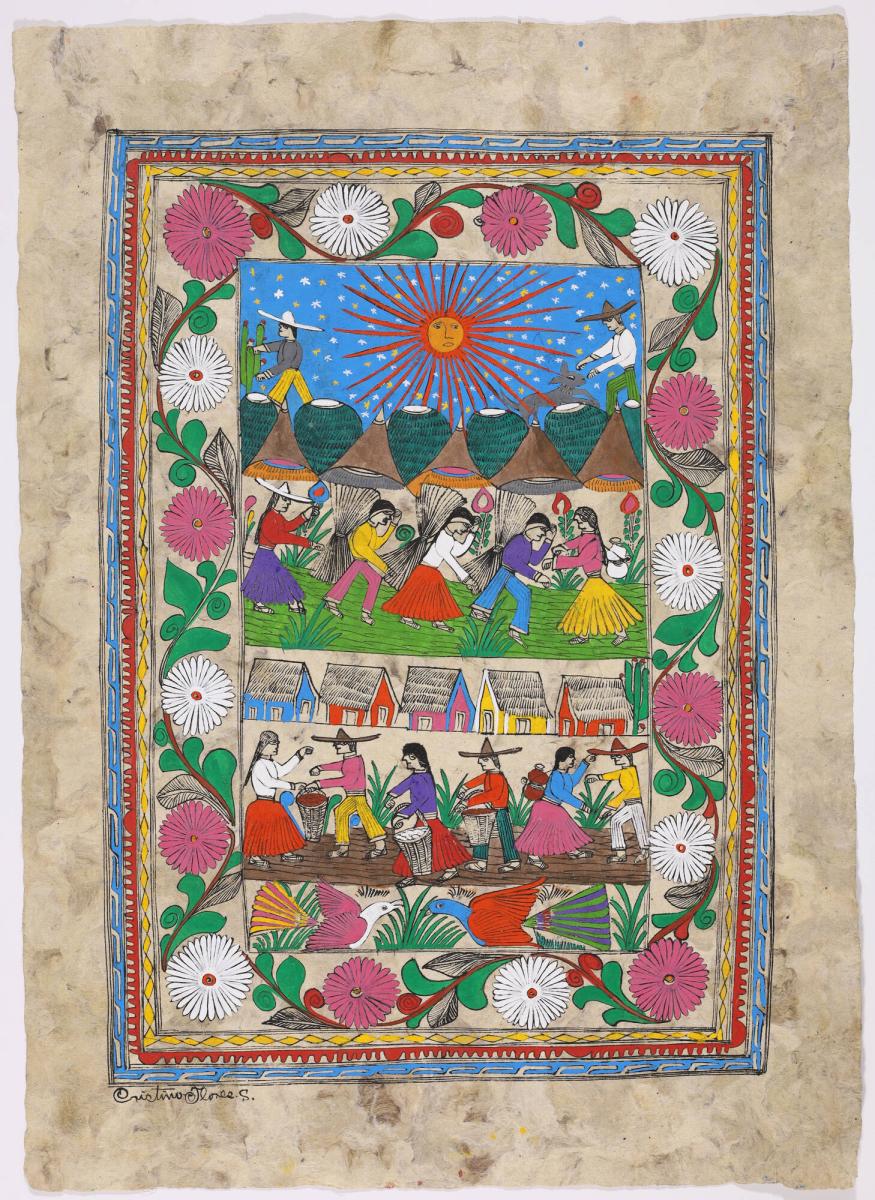 Cristino Flores. S.